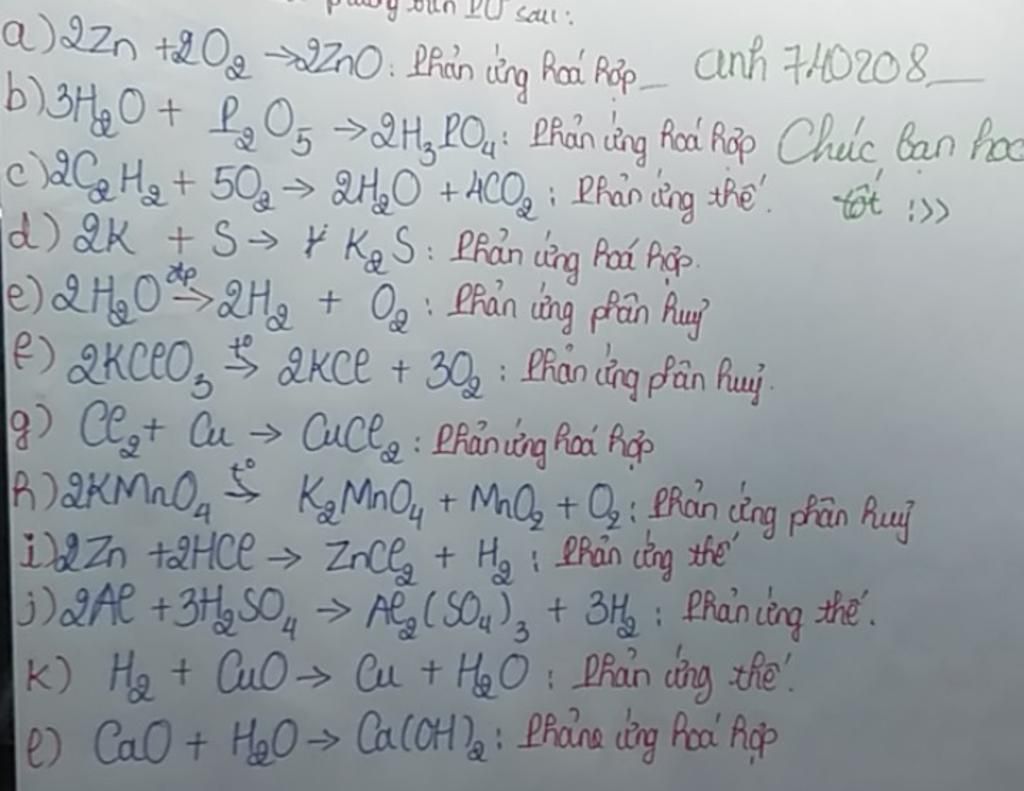 sau:
a) 2Zn + 2O₂ → 2ZnO: Phản ứng hoá hợp_ anh 740208_
b) 3H₂O + P₂O₅ → 2H₃PO₄: Phản ứng hoá hợp Chúc bạn học
c) 2C₂H₂ + 5O₂ → 2H₂O + 4CO₂: Phản ứng thế. tốt :>>
d) 2K + S → K₂S: Phản ứng hoá hợp.
e) 2H₂O →(đp) 2H₂ + O₂: Phản ứng phân huỷ
f) 2KClO₃ →(t°) 2KCl + 3O₂: Phản ứng phân huỷ.
g) Cl₂ + Cu → CuCl₂: Phản ứng hoá hợp
h) 2KMnO₄ →(t°) K₂MnO₄ + MnO₂ + O₂: Phản ứng phân huỷ
i) 2Zn + 2HCl → ZnCl₂ + H₂: Phản ứng thế
j) 2Al + 3H₂SO₄ → Al₂(SO₄)₃ + 3H₂: Phản ứng thế.
k) H₂ + CuO → Cu + H₂O: Phản ứng thế.
l) CaO + H₂O → Ca(OH)₂: Phản ứng hoá hợp